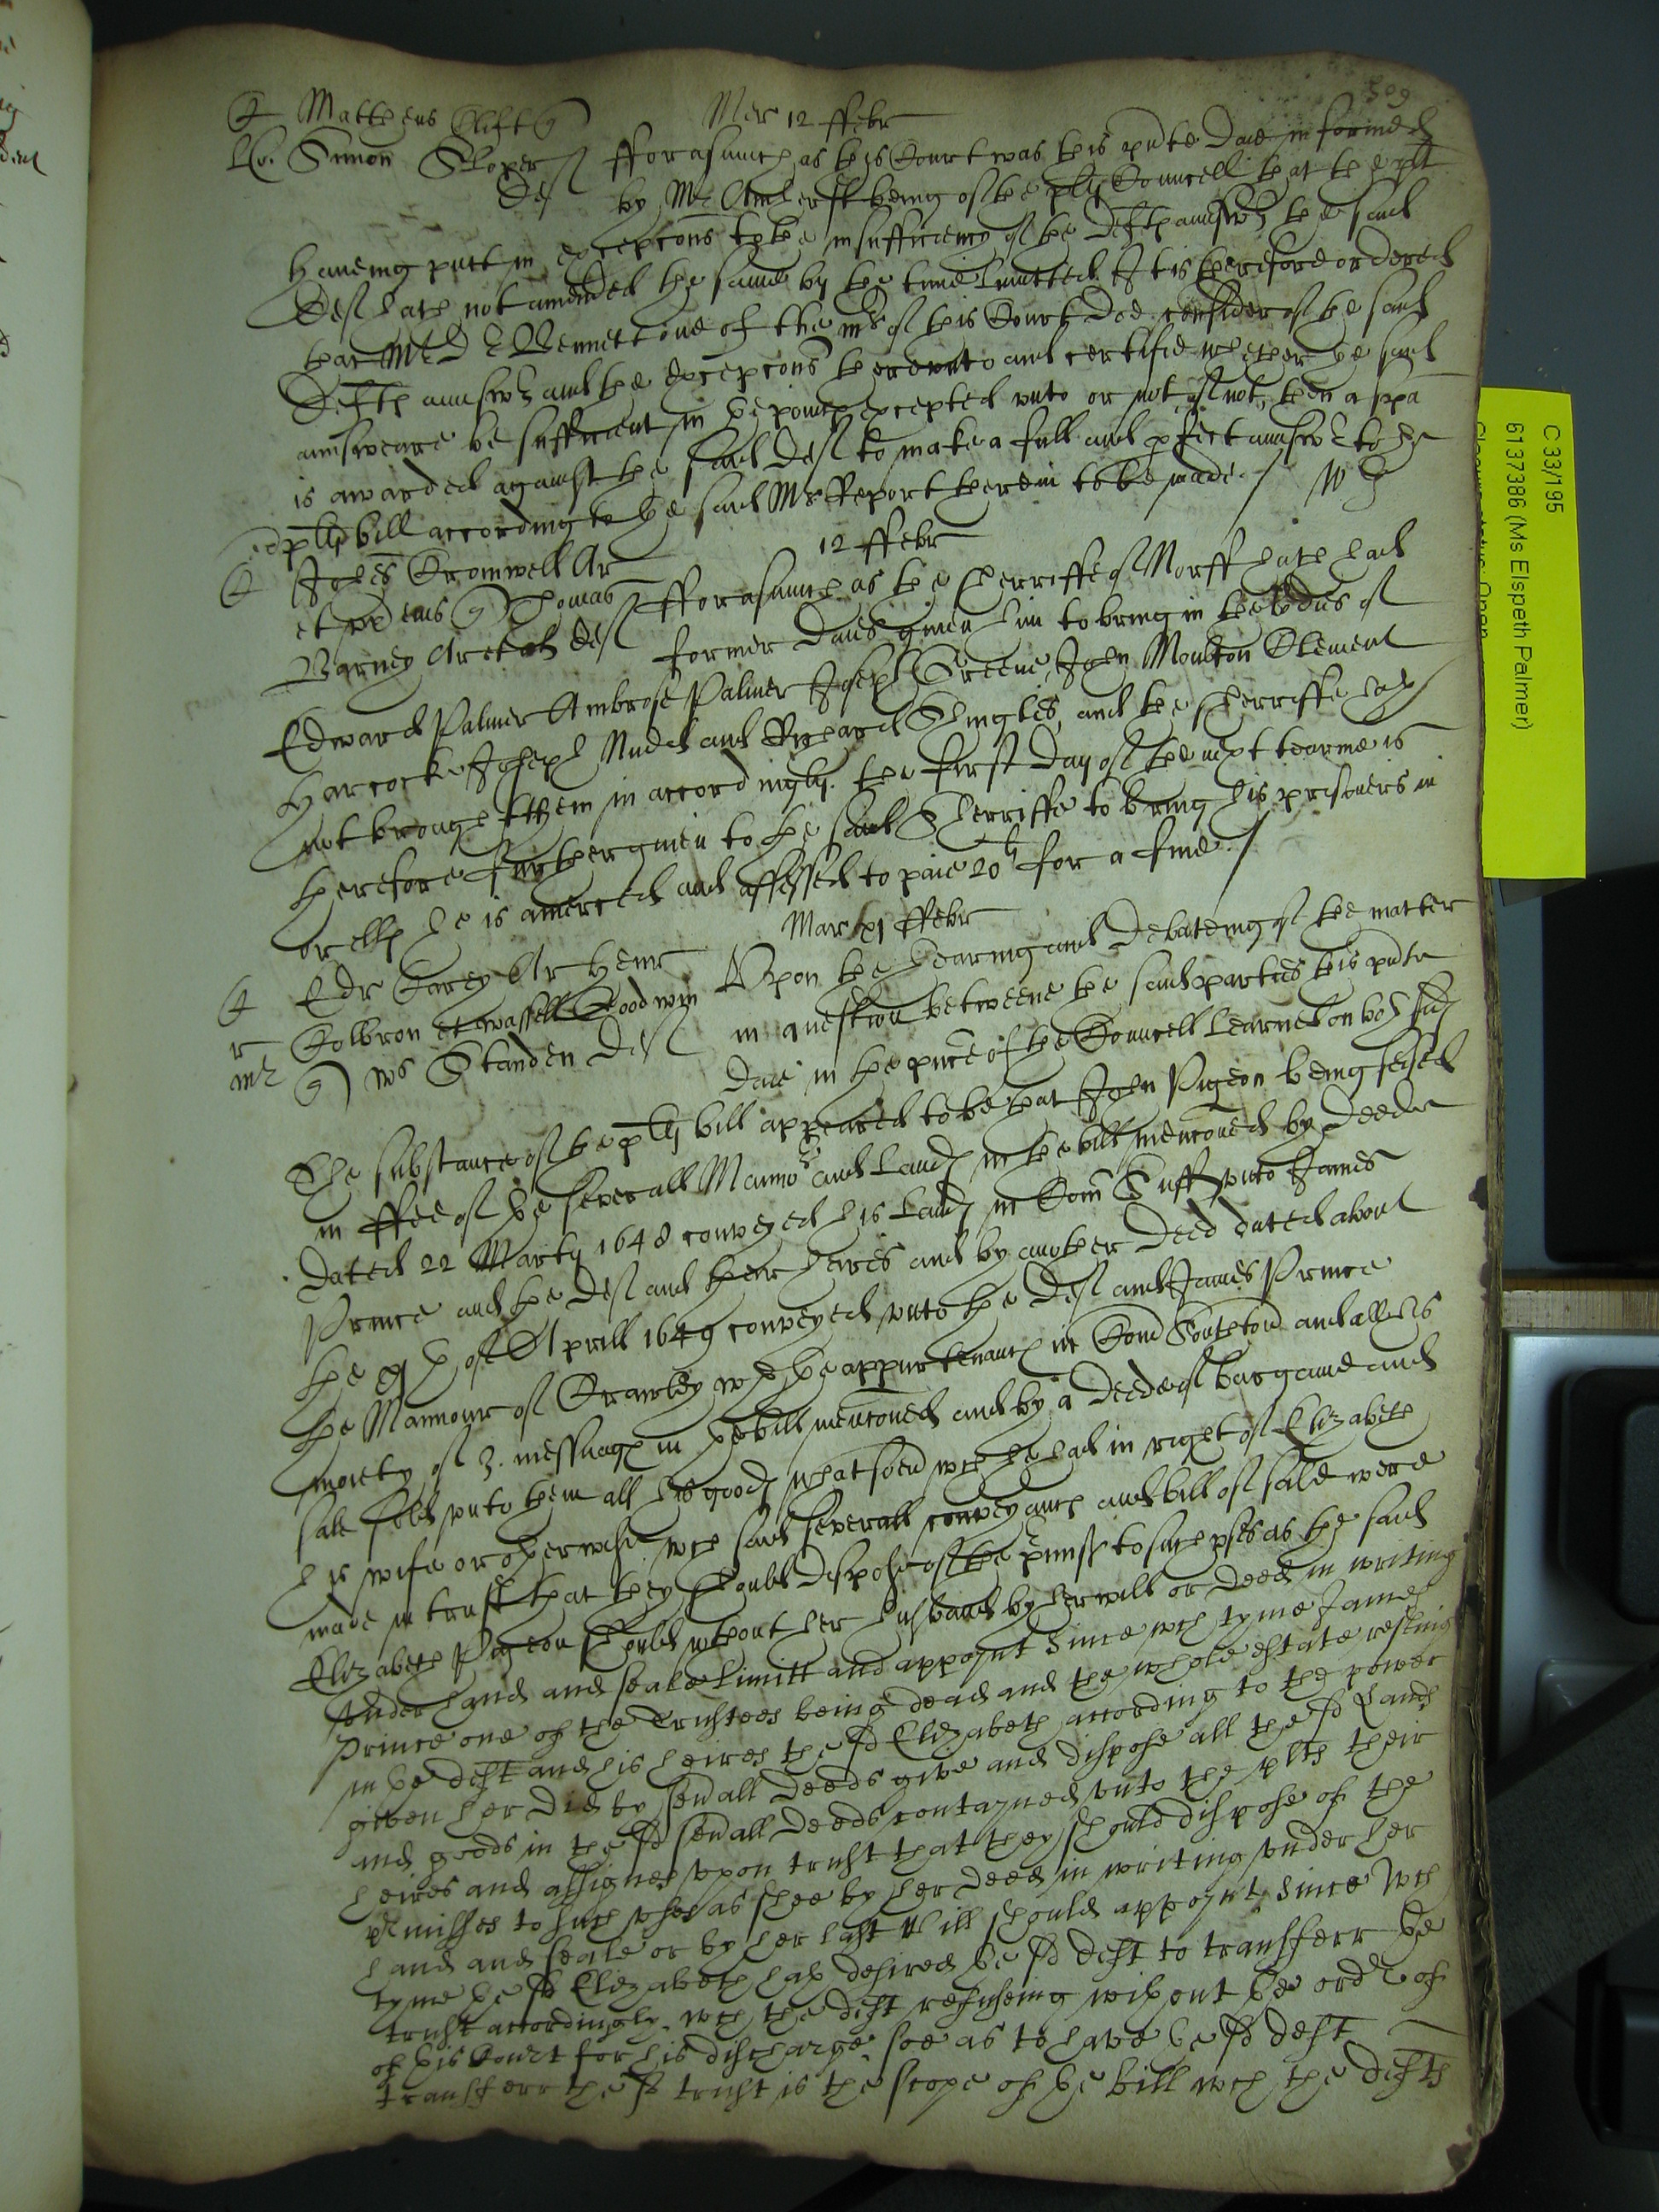 509
Mer 12 ffebr
Mattheus Clift
Simon Sloper Def
fforasmuch as this Court was this pnte Daie informed
by Mr Amherst being of the plts Councell that the plt
haveing putt in excepcons to the insufficiency of the Defts answr the said
Def hath not amended the same by the time limitted. It is therefore ordered
that Mr Dr Bennett one of the mrs of this Court doe consider of the said
Defts answr and the excepcons thereunto and certifie whether the said
answeare be sufficient in the points excepted unto or not, if not, then a spa
is awarded against the said Def to make a full and pfect answr to the
plts bill according to the said Mrs Report therein to be made /
12 ffebr
Johes Cromwell Ar
et Thomas
Barney Def
fforasmuch as the Sherriffe of Norff hath had
former daies given him to bring in the of
Edward Palmer Ambrose Palmer Joseph Greene, John Moulton Clement
Harcocke Joseph Mudd and Richard Shingles, and the Sherriffe hath
not brought them in accordingly. the first day of the next tearme is
therefore further given to the said Sherriffe to bring his prisoners in
or ells he is amerced and assessed to paie 20li for a fine /
Mar xj ffebr
Edr Carey Ar Henr
Colbron et Goodwin
Ws Standen Def
Upon the hearing and debateing of the matter
in question betweene the said parties this pnte
daie in the pnce of the Councell learned on both sids
The substance of the plts bill appeared to be that John Pigeon being seised
in ffee of the severall Mannors and Lands in the bill mencioned by deede
Dated 22 Martij 1648 conveyed his Lands in Com Suff unto James
Prince and the Def and their heires and by another deed dated about
the of Aprill 1649 conveyed unto the Def and James Prince
the Mannour of Crawley wth the appurtenancs in Com Southton and all his
moiety of 3. messuags in the bill mencioned and by a deede of bargaine and
sale sold unto them all his goods whatsoever wch he had in right of Elizabeth
his wife or otherwise. wch said severall conveyancs and bill of sale were
made in trust that they should dispose of the prmiss to such uses as the said
Elizabeth Pigeon should without her husband by her will or deed in writing
under hand and seale limitt and appoynt Since wch tyme James
Prince one of the Trustees being dead and the whole estate resting
in the deft and his heires the sd Elizabeth according to the power
given her did by severall deeds give and dispose all the sd Lands
and goods in the sd severall deeds contayned unto the plts their
heires and assignes upon trust that they should dispose of the
prmisses to such uses as shee by her deed in writing under her
hand and seale or by her last Will should appoynt, Since Wch
tyme the sd Elizabeth hath desired the sd deft to transferr the
trust accordingly. wch the deft refuseing without the ordr of
of this Court for his discharge. soe as to have the sd deft
transferr the sd trust is the scope of the bill wch the defts
C 33/195
6137386 (Ms Elspeth Palmer)